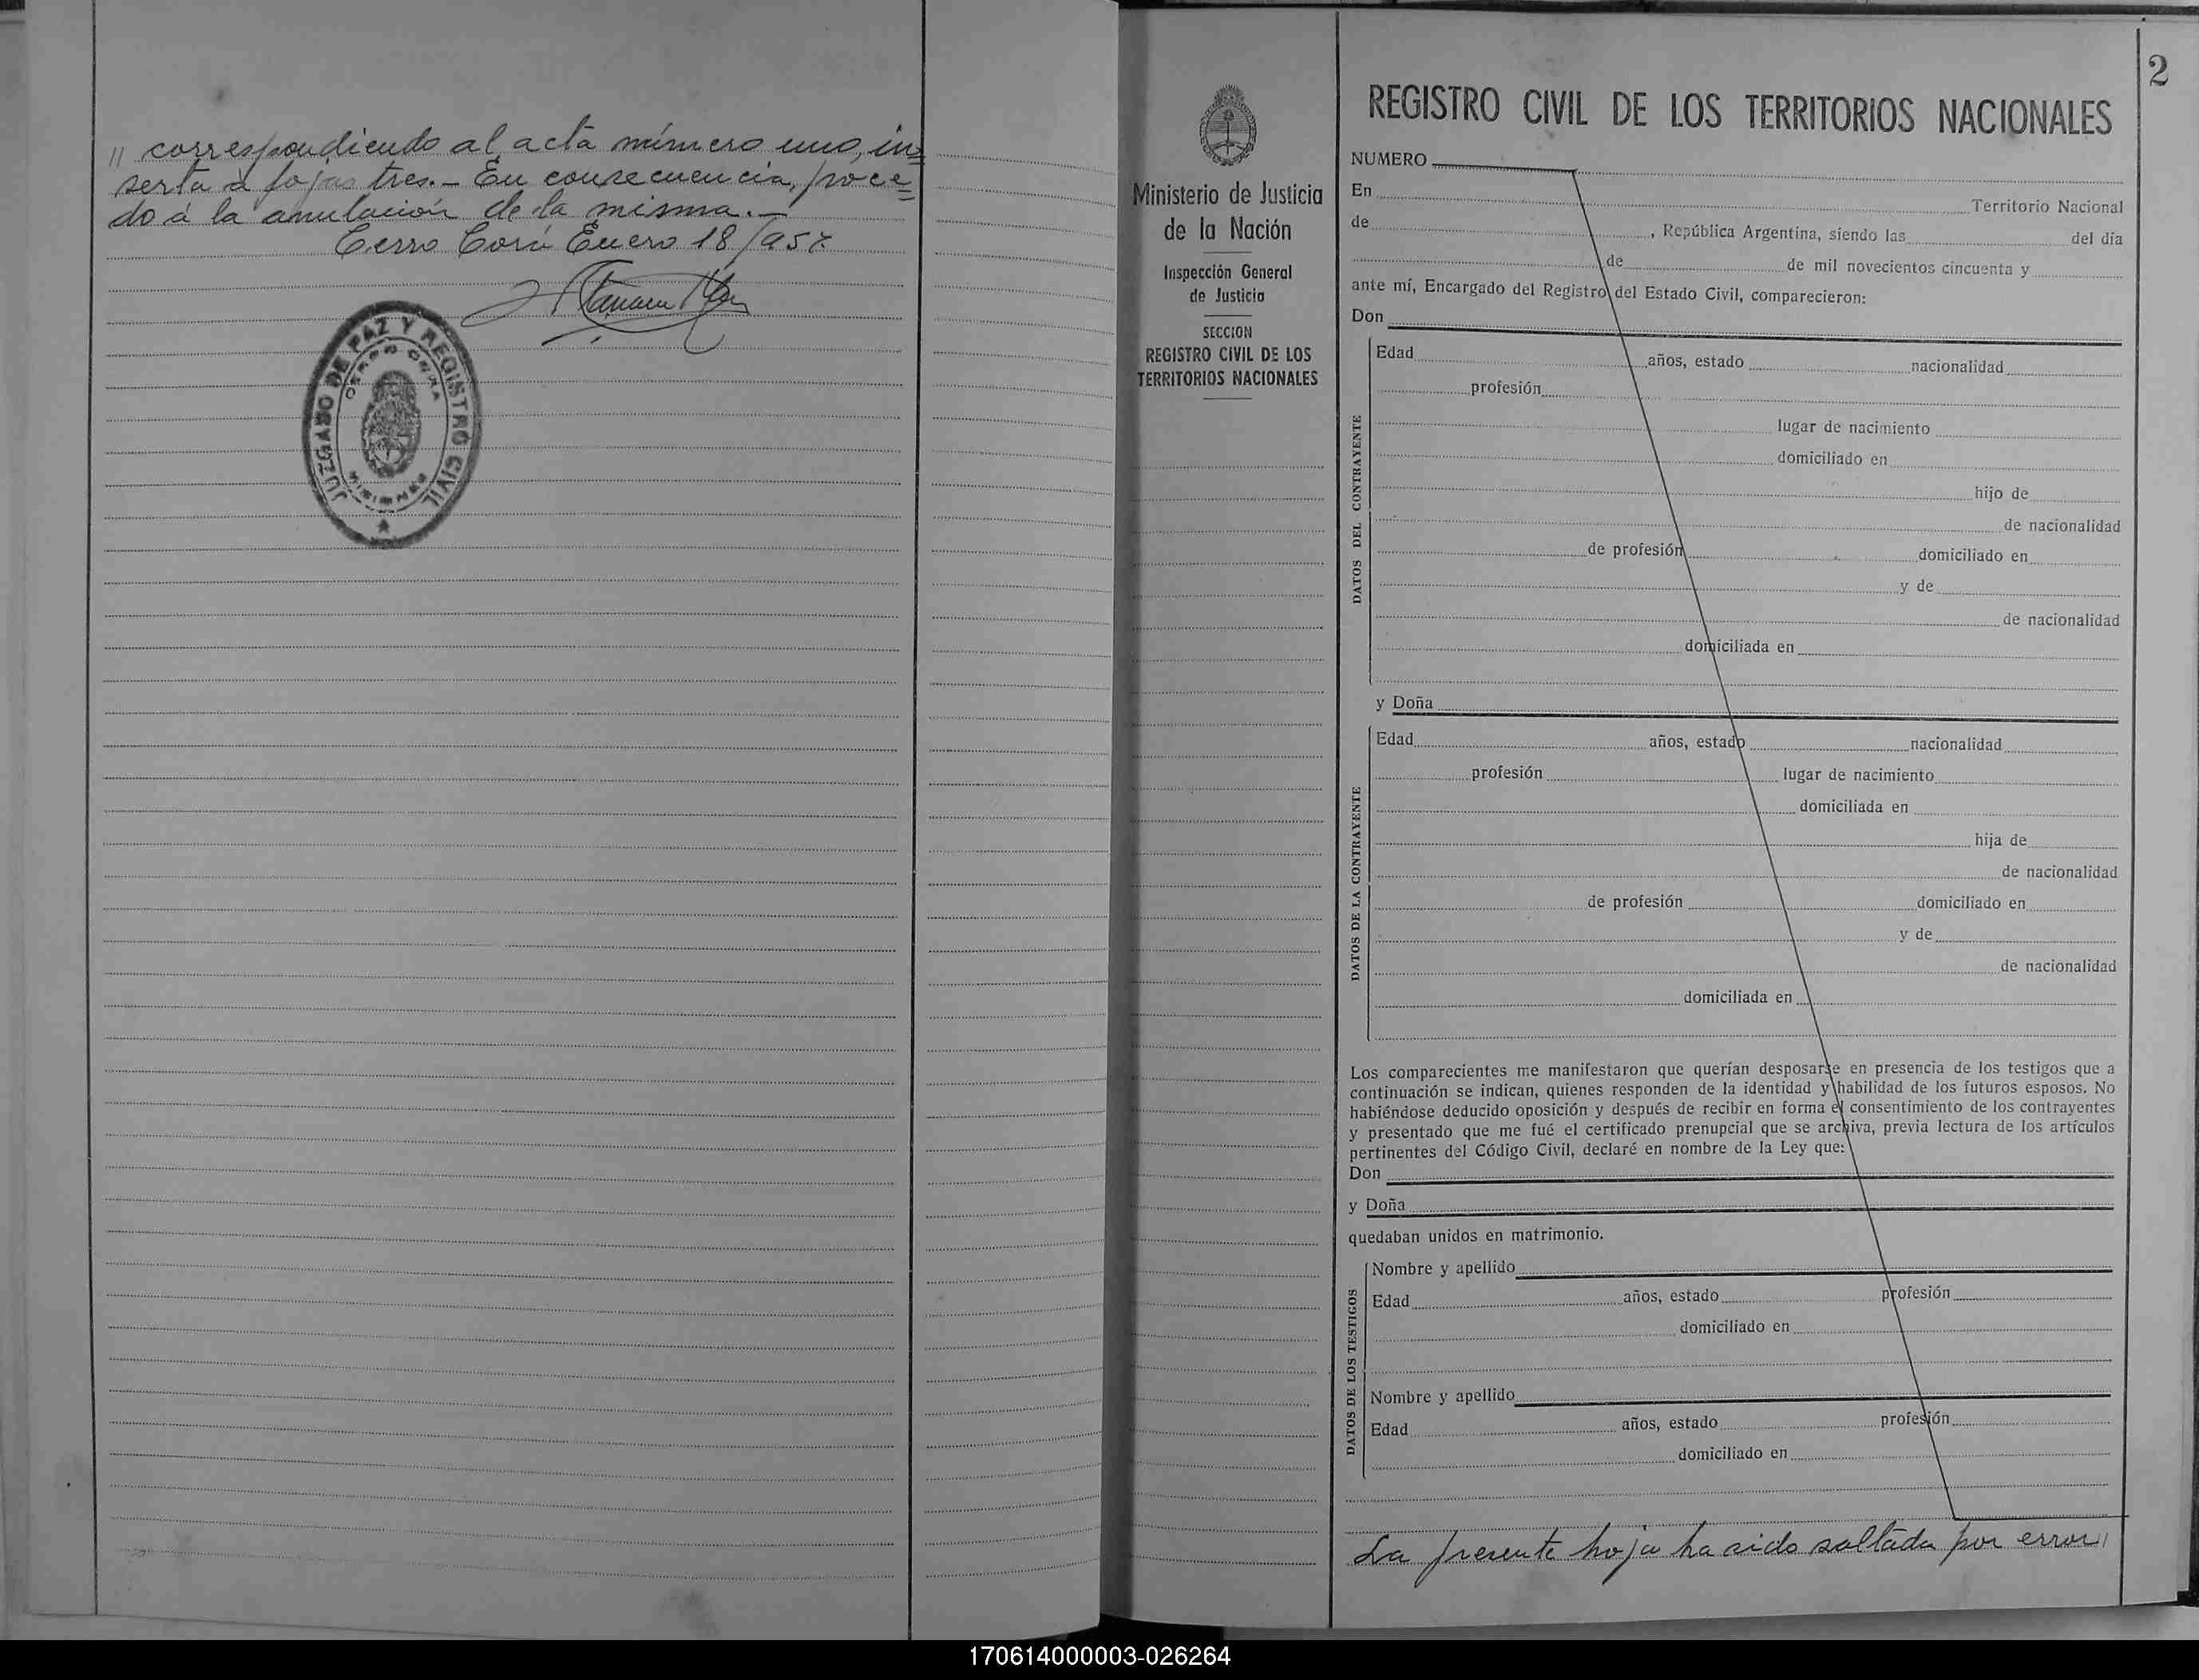 // correspondiendo al acta número uno, in=
serta a fojas tres.- En consecuencia, proce=
do á la anulación de la misma.-
Cerro Corá Enero 18/957
JUZGADO DE PAZ Y REGISTRO CIVIL
CERRO CORA
MISIONES
2
Ministerio de Justicia
de la Nación
Inspección General
de Justicia
SECCION
REGISTRO CIVIL DE LOS
TERRITORIOS NACIONALES
REGISTRO CIVIL DE LOS TERRITORIOS NACIONALES
NUMERO
En Territorio Nacional
de , República Argentina, siendo las del día
de de mil novecientos cincuenta y
ante mí, Encargado del Registro del Estado Civil, comparecieron:
Don
DATOS DEL CONTRAYENTE
Edad años, estado nacionalidad
profesión
lugar de nacimiento
domiciliado en
hijo de
de nacionalidad
de profesión domiciliado en
y de
de nacionalidad
domiciliada en
y Doña
DATOS DE LA CONTRAYENTE
Edad años, estado nacionalidad
profesión lugar de nacimiento
domiciliada en
hija de
de nacionalidad
de profesión domiciliado en
y de
de nacionalidad
domiciliada en
Los comparecientes me manifestaron que querían desposarse en presencia de los testigos que a
continuación se indican, quienes responden de la identidad y habilidad de los futuros esposos. No
habiéndose deducido oposición y después de recibir en forma el consentimiento de los contrayentes
y presentado que me fué el certificado prenupcial que se archiva, previa lectura de los artículos
pertinentes del Código Civil, declaré en nombre de la Ley que:
Don
y Doña
quedaban unidos en matrimonio.
DATOS DE LOS TESTIGOS
Nombre y apellido
Edad años, estado profesión
domiciliado en
Nombre y apellido
Edad años, estado profesión
domiciliado en
La presente hoja ha sido saltada por error//
170614000003-026264